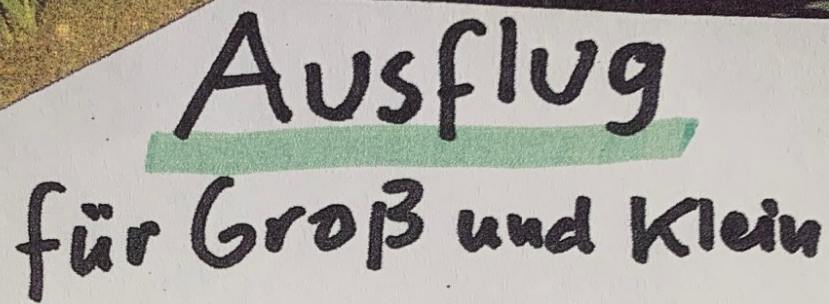 Ausflug
für Groß und Klein